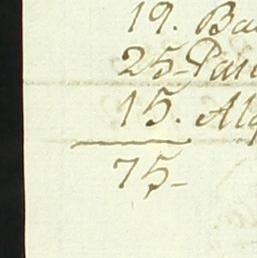 19. Ba
25-Pas
15. Alq
75-